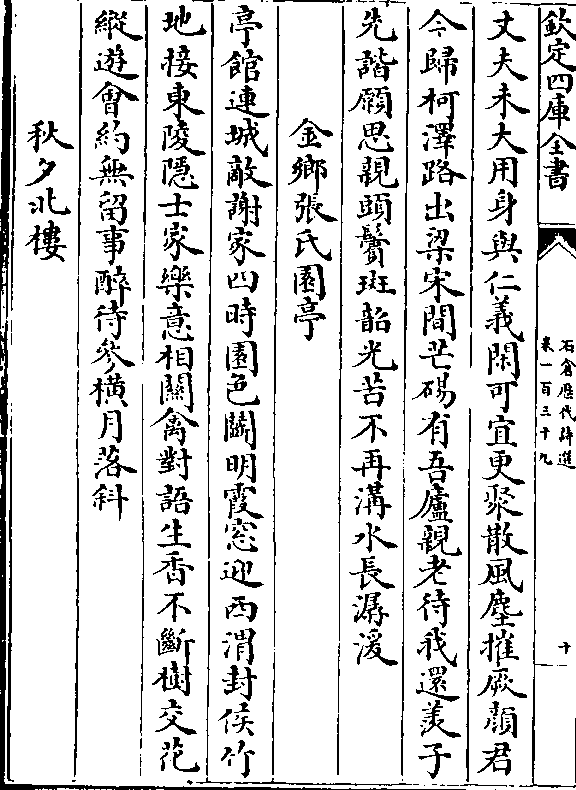 欽定四庫全書
石倉歷代詩選
卷一百三十九
十
丈夫未大用身與仁義閑可宜更聚散風塵摧厥顔君
今歸柯澤路出梁宋間芒碭有吾廬親老待我還羨子
先諧願思親頭鬢斑韶光苦不再溝水長潺湲
金鄉張氏園亭
亭館連城敵謝家四時園色鬭明霞窓迎西渭封侯竹
地接東陵隱士家樂意相關禽對語生香不斷樹交花
縱遊會約無留事醉待參橫月落斜
秋夕北樓